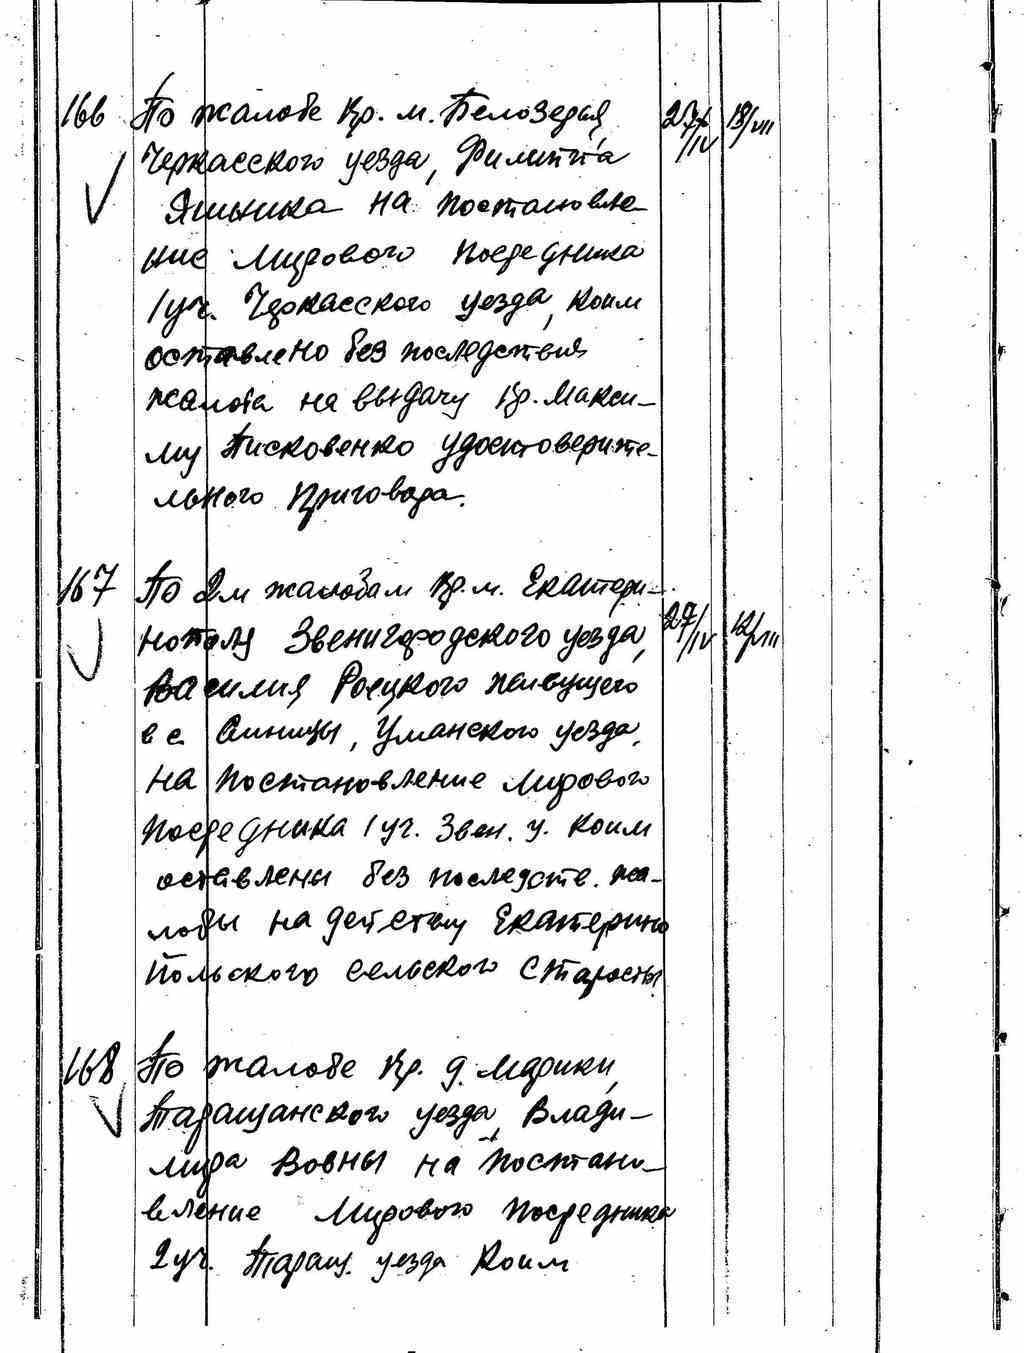 166 По жалобе кр. м. Белозерья, 27/IV 18/VIII
Черкасского уезда, Филиппа
Яшника на постановле-
ние Мирового посредника
1 уч. Черкасского уезда, коим
оставлено без последствия
жалоба на выдачу кр. Макси-
му Писковенко удостоверите-
льного приговора.
167 По 2м жалобам кр. м. Екатери-
нополя Звенигородского уезда, 27/IV 12/VIII
Василия Росцкого живущего
в с. Синицы, Уманского уезда,
на постановление Мирового
Посредника 1 уч. Звен. у. коим
оставлены без последств. жа-
лобы на действия Екатерино
польского сельского старосты
168 По жалобе кр. д.
Таращанского уезда, Влади-
мира Вовны на постано-
вление Мирового посредника
2 уч. Таращ. уезда коим